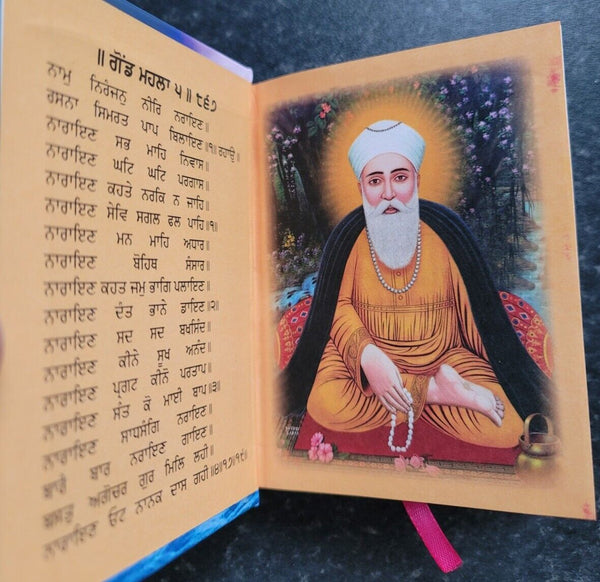 ॥ ਗੋਂਡ ਮਹਲਾ ੫॥ ੮੬੭
ਨਾਮੁ ਨਿਰੰਜਨੁ ਨੀਰਿ ਨਰਾਇਣ॥
ਰਸਨਾ ਸਿਮਰਤ ਪਾਪ ਬਿਲਾਇਣ॥੧॥ ਰਹਾਉ॥
ਨਾਰਾਇਣ ਸਭ ਮਾਹਿ ਨਿਵਾਸ॥
ਨਾਰਾਇਣ ਘਟਿ ਘਟਿ ਪਰਗਾਸ॥
ਨਾਰਾਇਣ ਕਹਤੇ ਨਰਕਿ ਨ ਜਾਹਿ॥
ਨਾਰਾਇਣ ਸੇਵਿ ਸਗਲ ਫਲ ਪਾਹਿ॥੧॥
ਨਾਰਾਇਣ ਮਨ ਮਾਹਿ ਅਧਾਰ॥
ਨਾਰਾਇਣ ਬੋਹਿਥ ਸੰਸਾਰ॥
ਨਾਰਾਇਣ ਕਹਤ ਜਮੁ ਭਾਗਿ ਪਲਾਇਣ॥
ਨਾਰਾਇਣ ਦੰਤ ਭਾਨੇ ਡਾਇਣ॥੨॥
ਨਾਰਾਇਣ ਸਦ ਸਦ ਬਖਸਿੰਦ॥
ਨਾਰਾਇਣ ਕੀਨੇ ਸੂਖ ਅਨੰਦ॥
ਨਾਰਾਇਣ ਪ੍ਰਗਟ ਕੀਨੋ ਪਰਤਾਪ॥
ਨਾਰਾਇਣ ਸੰਤ ਕੋ ਮਾਈ ਬਾਪ॥੩॥
ਨਾਰਾਇਣ ਸਾਧਸੰਗਿ ਨਰਾਇਣ॥
ਬਾਰੰ ਬਾਰ ਨਰਾਇਣ ਗਾਇਣ॥
ਬਸਤੁ ਅਗੋਚਰ ਗੁਰ ਮਿਲਿ ਲਹੀ॥
ਨਾਰਾਇਣ ਓਟ ਨਾਨਕ ਦਾਸ ਗਹੀ॥੪॥੧੭॥੧੯॥